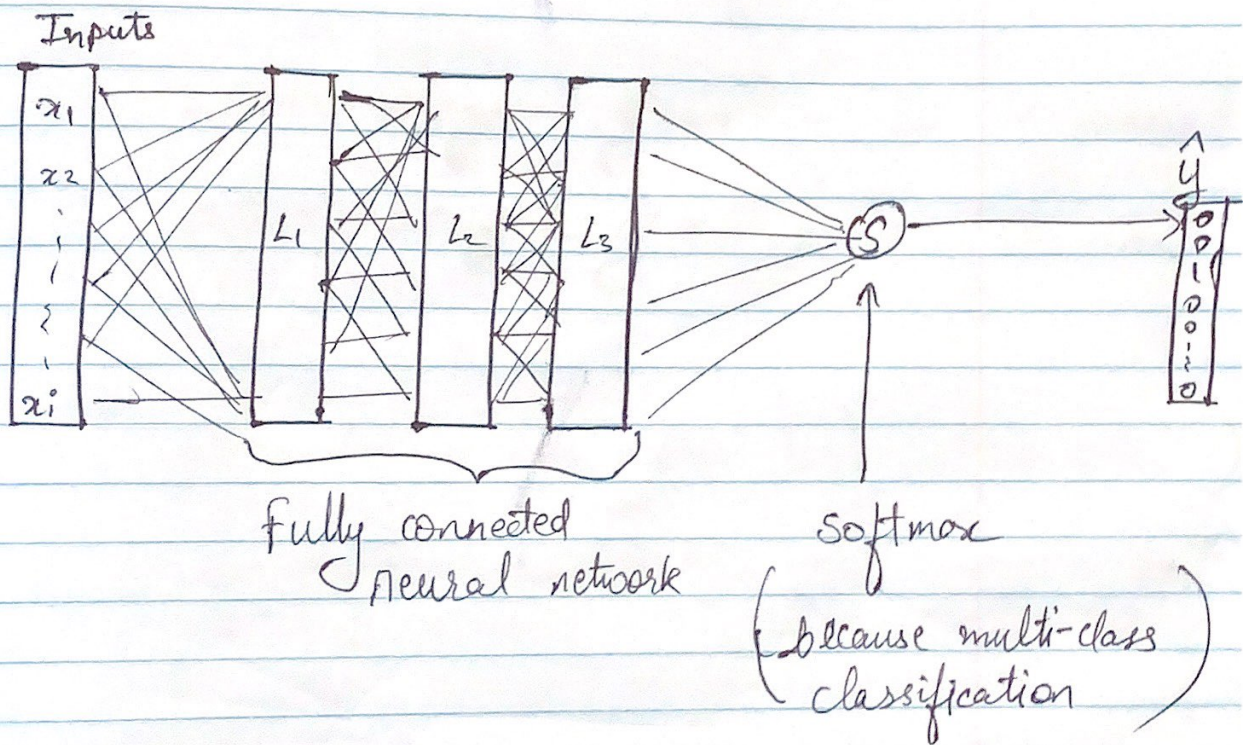 Inputs
x1
x2
xi
L1
L2
L3
S
ŷ
0
0
1
0
0
0
Fully connected
neural network
Softmax
(because multi-class
classification)